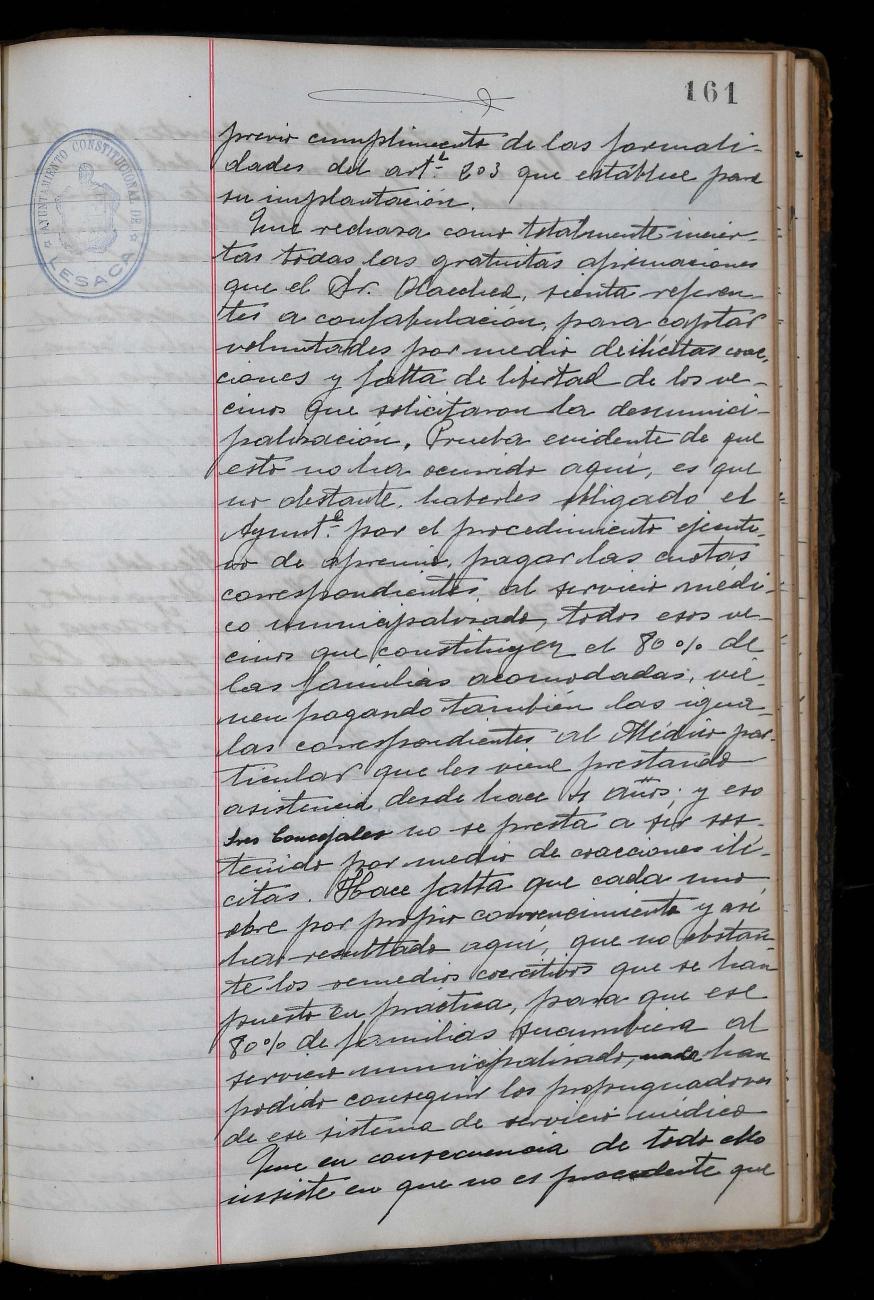 161
AYUNTAMIENTO CONSTITUCIONAL DE
LESACA
previo cumplimiento de las formali-
dades del artº 203 que establece para
su implantación.
Que rechaza como totalmente incier-
tas todas las gratuitas afirmaciones
que el Sr. sienta referen-
tes a confabulación, para captar
voluntades por medio de ilícitas coac-
ciones y falta de libertad de los ve-
cinos que solicitaron la desmunici-
palización. Prueba evidente de que
esto no ha ocurrido aquí, es que
no obstante, haberles obligado el
Ayuntº por el procedimiento ejecuti-
vo de apremio, pagar las cuotas
correspondientes al servicio médi-
co municipalizado, todos esos ve-
cinos que constituyen el 80% de
las familias acomodadas, vie-
nen pagando también las igua-
las correspondientes al Médico par-
ticular que les viene prestando
asistencia desde hace años; y eso
tres Concejales no se presta a ser sos-
tenido por medio de coacciones ilí-
citas. Hace falta que cada uno
obre por propio convencimiento y así
ha resultado aquí, que no obstan-
te los remedios coercitivos que se han
puesto en práctica, para que ese
80% de familias sucumbiera al
servicio municipalizado, nada han
podido conseguir los propugnadores
de ese sistema de servicio médico
Que en consecuencia de todo ello
insiste en que no es procedente que